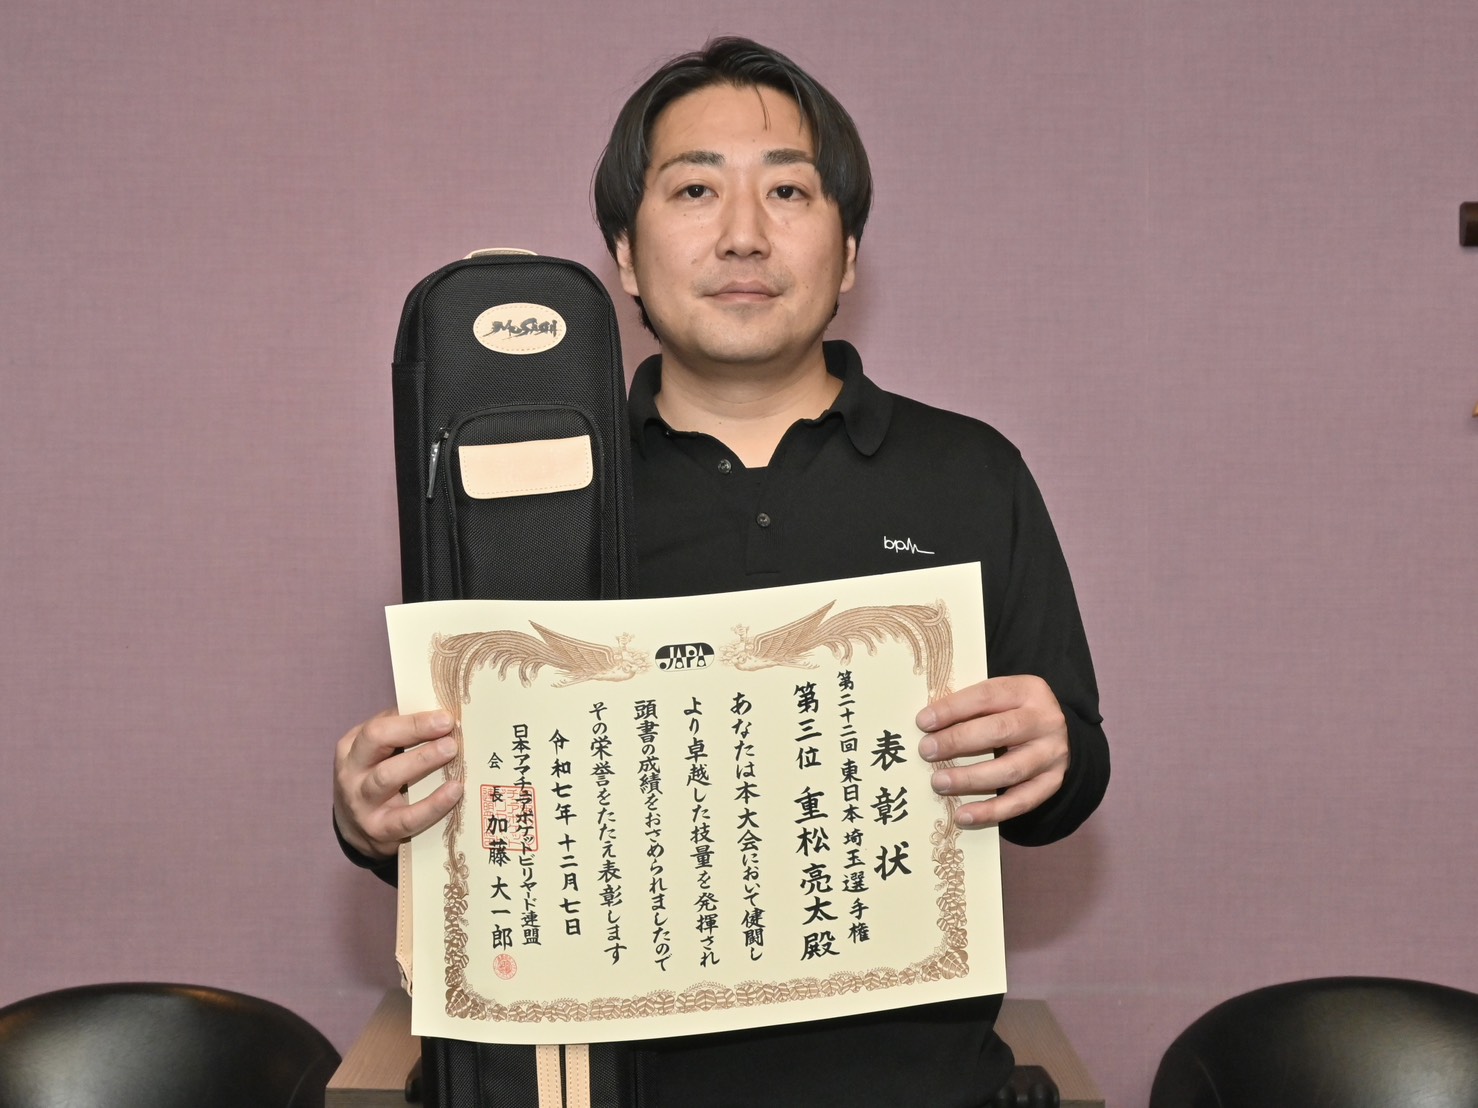 MUSASHI
bpm
JAPA
表彰状
第二十二回 東日本埼玉選手権
第三位 重松亮太殿
あなたは本大会において健闘し
より卓越した技量を発揮され
頭書の成績をおさめられましたので
その栄誉をたたえ表彰します
令和七年十二月七日
日本アマチュアポケットビリヤード連盟
会長 加藤大一郎